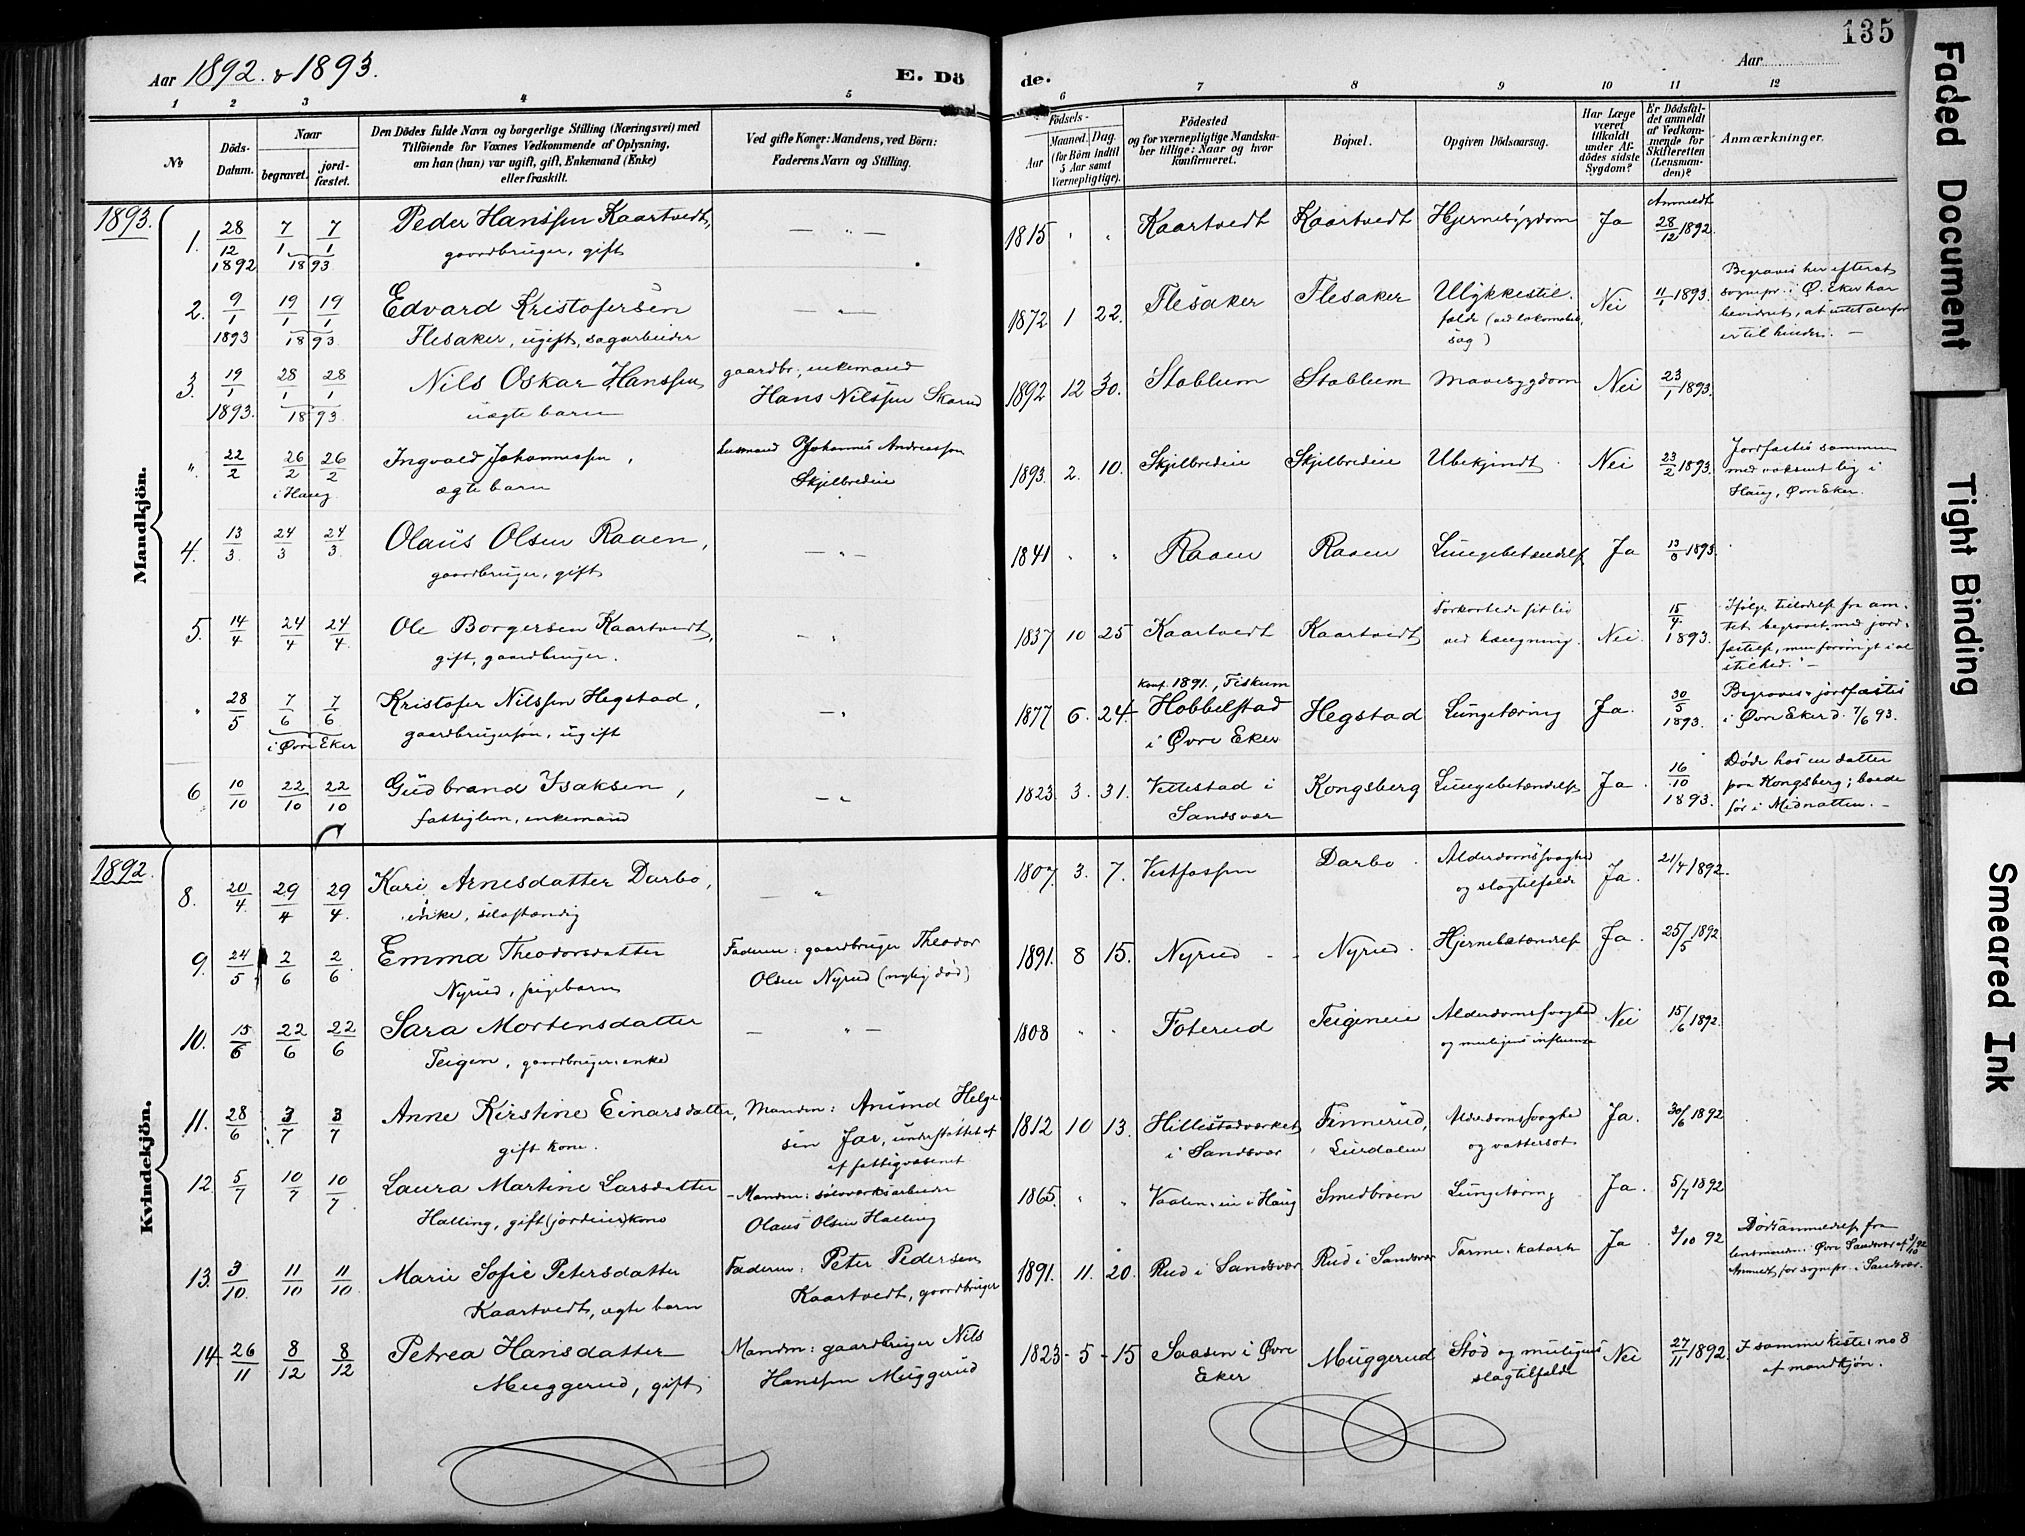 135
Aar 1892 & 1893.
E. Dö
de.
Aar
1 2 3 4 5 6 7 8 9 10 11 12
No
Döds-Datum.
Naar
begravet.
jord-fæstet.
Den Dödes fulde Navn og borgerlige Stilling (Næringsvei) med
Tilföiende for Voxnes Vedkommende af Oplysning,
om han (hun) var ugift, gift, Enkemand (Enke)
eller fraskilt.
Ved gifte Koner: Mandens, ved Börn:
Faderens Navn og Stilling.
Födsels-
Aar
Maaned. Dag.
(for Börn indtil
5 Aar samt
Værnepligtige).
Födested
og for værnepligtige Mandska-
ber tillige: Naar og hvor
konfirmeret.
Bopæl.
Opgiven Dödsaarsag.
Har Læge
været
tilkaldt
under Af-
dödes sidste
Sygdom?
Er Dödsfal-
det anmeldt
af Vedkom-
mende for
Skifteretten
(Lensman-
den)?
Anmærkninger.
Mandkjön.
1893.
1. 28/12 1892 7/1 7/1 1893 Peder Hanssen Kaartvedt, — „ — 1815 „ „ Kaartvedt Kaartvedt Hjernesygdom Ja Anmeldt 28/12 1892.
gaardbruger, gift
2. 9/1 1893 19/1 19/1 1893 Edvard Kristofersen — „ — 1872 1 22. Flesaker Flesaker Ulykkestil- Nei 11/1 1893. Begraves her efterat
Flesaker, ugift, sagarbeider
fælde (ved lokomobil
sag)
sognepr. i Ø. Eker har
bevidnet, at intet derfor
er til hinder. —
3. 19/1 1893. 28/1 28/1 1893 Nils Oskar Hanssen gaardbr., enkemand 1892 12 30. Stablum Stablum Mavesygdom Nei 23/1 1893.
uægte barn
Hans Nilssen Skarud
„ 22/2 26/2 26/2 i Haug Ingvald Johannessen, husmand Johannes Andreassen 1893. 2. 10. Skjelbredeie Skjelbredeie Ubekjendt. Nei 23/2 1893. Jordfæstes sammen
ægte barn
Skjelbredeie
med voksent lig i
Haug, Øvre Eker.
4. 13/3 24/3 24/3 Olaus Olsen Raaen, — „ — 1841 „ „ Raaen Raaen Lungebetændelse Ja 13/3 1893.
gaardbruger, gift
5. 14/4 24/4 24/4 Ole Borgersen Kaartvedt, — „ 1837 10 25 Kaartvedt Kaartvedt Forkortede sit liv Nei. 15/4 1893. Ifølge tilladelse fra am-
gift, gaardbruger.
ved hængning.
tet begravet med jord-
fæstelse, men forøvrigt i al
stilhed. —
„ 28/5 7/6 7/6 i Øvre Eker Kristofer Nilssen Hegstad, — „ 1877 6. 24. konf. 1891, Fiskum
gaardbrugersøn, ugift
Hobbelstad
i Øvre Eker
Hegstad Lungetæring Ja. 30/5 1893. Begraves & jordfæstes
i Øvre Eker d. 7/6 93.
6 10/10 22/10 22/10 Gudbrand Isaksen, — „ 1823. 3. 31. Vellestad i
fattiglem, enkemand
Sandsvær
Kongsberg Lungebetændelse Ja. 16/10 1893. Døde hos en datter
paa Kongsberg; boede
før i Midnatten. —
Kvindekjön.
1892.
8. 20/4 29/4 29/4 Kari Arnesdatter Darbo, — „ 1807. 3. 7. Vestfossen Darbo. Alderdomssvaghed Ja. 21/4 1892.
enke, selvstændig
og slagtilfælde
9. 24/5 2/6 2/6 Emma Theodorsdatter Faderen: gaardbruger Theodor 1891. 8 15. Nyrud Nyrud. Hjernebetændelse Ja. 25/5 1892
Nyrud, pigebarn
Olsen Nyrud (nylig død)
10. 15/6 22/6 22/6 Sara Mortensdatter — „ — 1808 „ „ Foterud Teigeneie Alderdomssvaghed Nei 15/6 1892.
Teigen, gaardbrugerenke
og muligens influensa
11. 28/6 3/7 3/7 Anne Kirstine Einarsdatter, Manden: Anund Helge- 1812 10 13. Hillestadværket Finnerud, Alderdomssvaghed Ja. 30/6 1892
gift kone.
sen Jar, understøttet af
af fattigvæsenet
i Sandsvær
Lurdalen
og vattersot
12. 5/7 10/7 10/7 Laura Martine Larsdatter — Manden: sølvverksarbeider 1865. „ „ Vaalen: eie i Haug Smedbroen Lungetæring Ja. 5/7 1892
Halling, gift (jordeier) kone
Olaus Olsen Halling
13. 3/10. 11/10 11/10 Marie Sofie Petersdatter Faderen: Peter Pedersen 1891. 11. 20. Rud i Sandsvær Rud i Sandsvær Tarme-katarrh Ja 3/10 92 Dødsanmeldelse fra
Kaartvedt, ægte barn
Kaartvedt, gaardbruger
lensmanden i Øvre Sandsvær af 3/10 92
Anmeldt for sognepr. i Sandsvær.
14 26/11 8/12 8/12 Petrea Hansdatter Manden: gaardbruger Nils 1823 - 5 - 15 Saasen i Øvre Muggerud Stød og muligens Nei 27/11 1892. I samme kiste: no 8
Muggerud, gift
Hanssen Muggerud
Eker
slagtilfælde
af mandkjøn.
Faded Document
Tight Binding
Smeared Ink